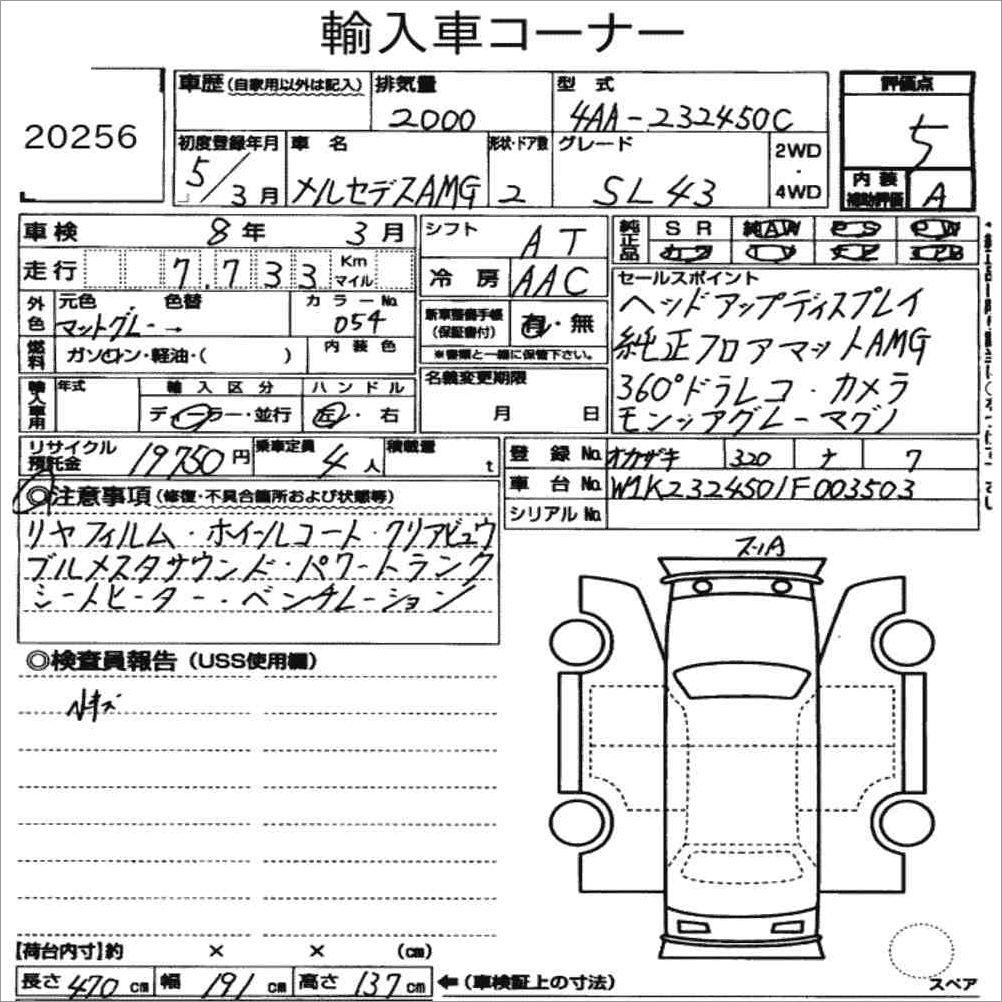 輸入車コーナー
20256
車歴 (自家用以外は記入) 排気量 2000 型式 4AA-232450C 評価点 5
初度登録年月 5/3月 車名 メルセデスAMG 形状・ドア数 2 グレード SL43 2WD・4WD 内装補助評価 A
車検 8年 3月 シフト AT 純正品 SR 純AW PS PW
走行 7,733 Km マイル 冷房 AAC
セールスポイント
外色 元色 マットグレー → 色替 カラーNo. 054 新車整備手帳(保証書付) 有・無 ヘッドアップディスプレイ
燃料 ガソリン・軽油・( ) 内装色 ※書類と一緒に保管下さい。 純正フロアマットAMG
輸入車用 年式 輸入区分 ディーラー・並行 ハンドル 左・右 名義変更期限 月 日 360°ドラレコ・カメラ
リサイクル預託金 19750円 乗車定員 4人 積載量 t
登録No. オカザキ 320 ナ 7
車台No. W1K2324501F003503
シリアルNo.
◎注意事項 (修復・不具合箇所および状態等)
リヤフィルム・ホイールコート・クリアビュウ
ブルメスタサウンド・パワートランク
シートヒーター・ベンチレーション
◎検査員報告 (USS使用欄)
小キズ
【荷台内寸】約 × × (cm)
長さ 470cm 幅 191cm 高さ 137cm ←(車検証上の寸法)
スペア